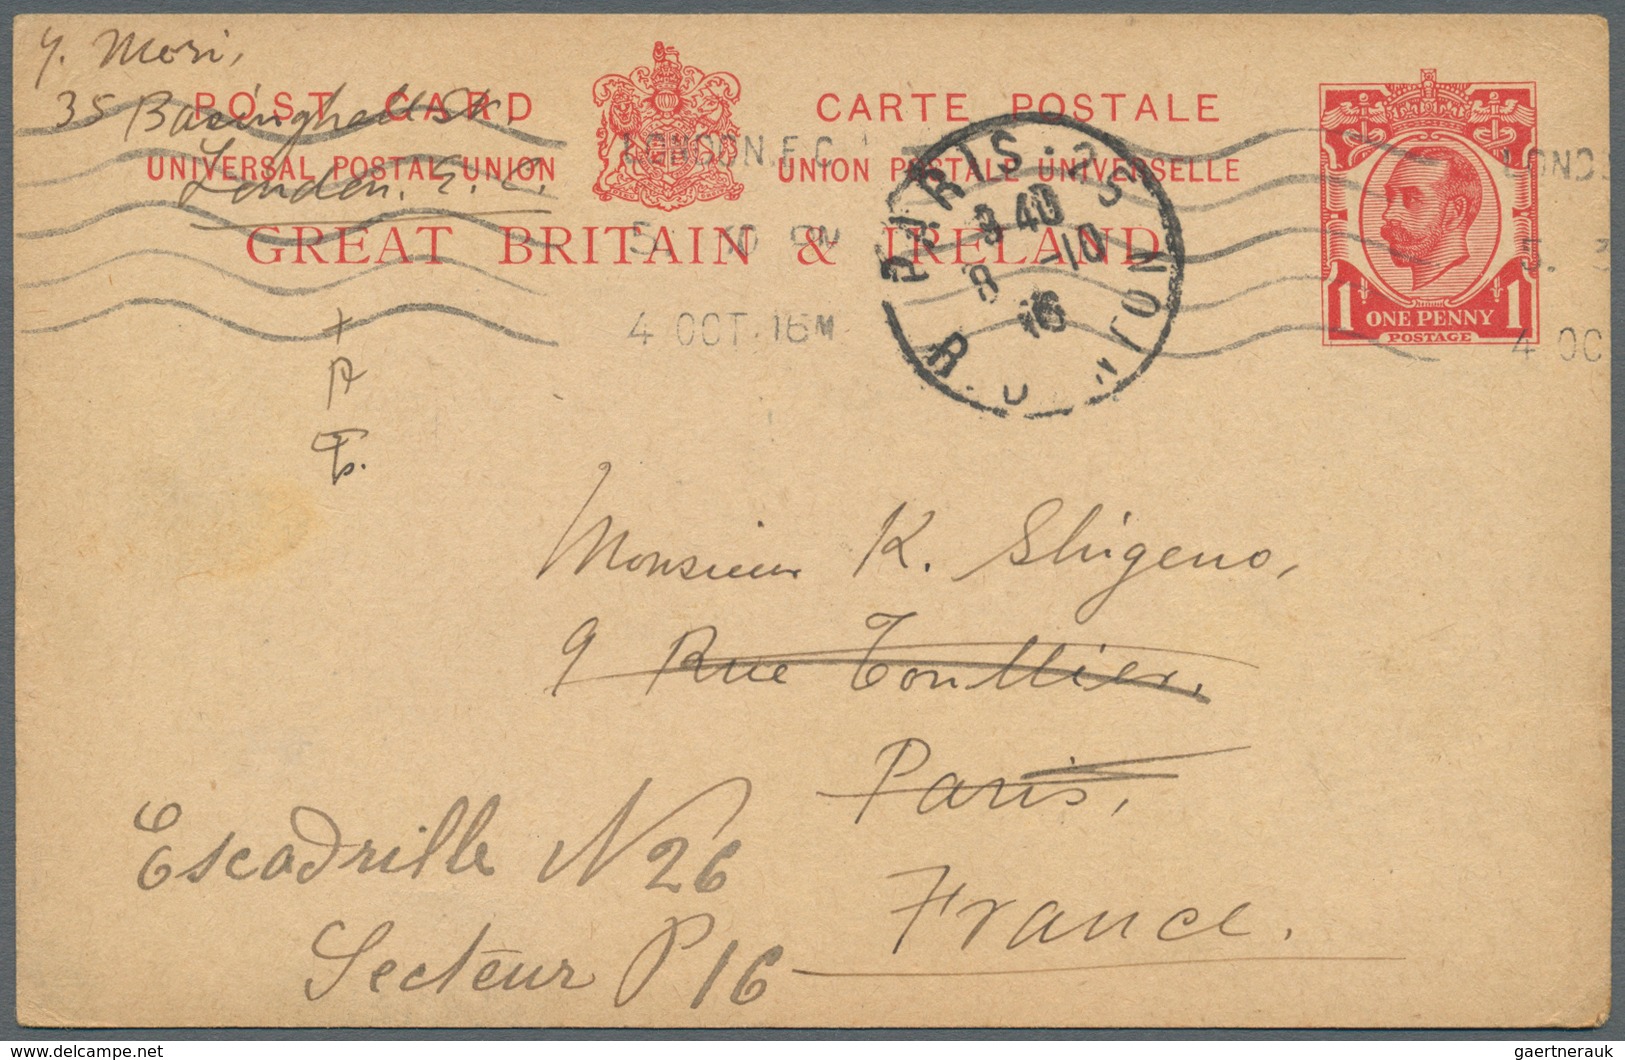 Y. Mori,
35 Basinghall St.
London. E. C.
POST CARD
CARTE POSTALE
UNIVERSAL POSTAL UNION
UNION POSTALE UNIVERSELLE
GREAT BRITAIN & IRELAND
LONDON.E.C
4 OCT.16
PARIS · 25
3 40
8 -10
16
1 1
ONE PENNY
POSTAGE
LOND
5. 3
4 OC
Monsieur K. Shigeno,
9 Rue Toullier,
Paris,
France.
Escadrille N 26
Secteur P 16
gaertnerauk